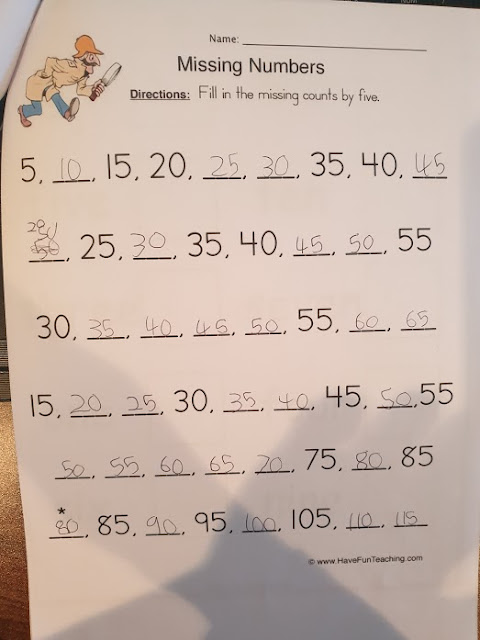 Name:
Missing Numbers
Directions: Fill in the missing counts by five.
5, 10, 15, 20, 25, 30, 35, 40, 45
20, 25, 30, 35, 40, 45, 50, 55
30, 35, 40, 45, 50, 55, 60, 65
15, 20, 25, 30, 35, 40, 45, 50, 55
50, 55, 60, 65, 70, 75, 80, 85
*
80, 85, 90, 95, 100, 105, 110, 115
© www.HaveFunTeaching.com